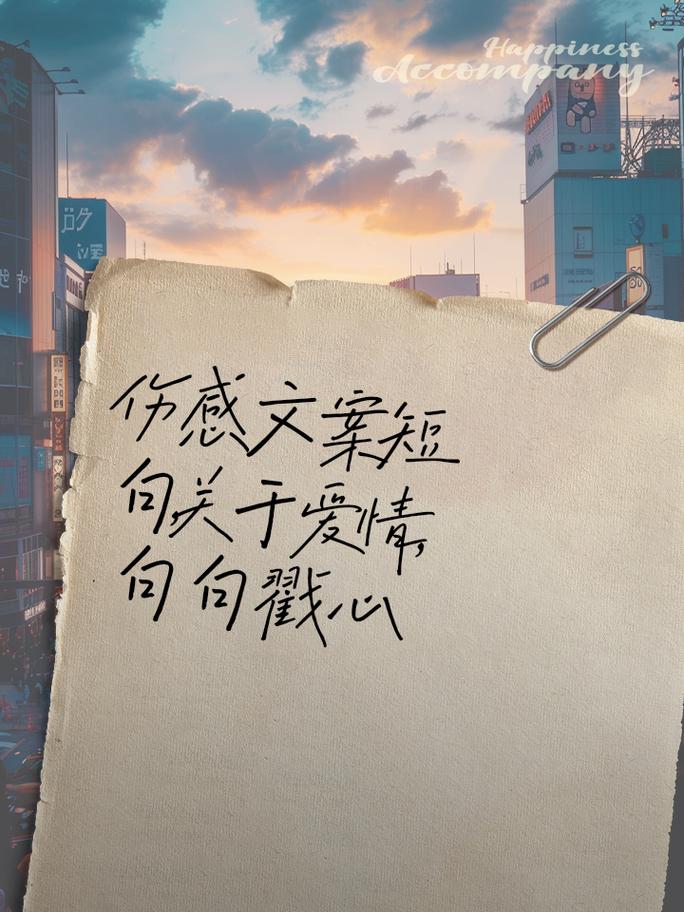 Happiness
Accompany
伤感文案短
句关于爱情,
句句戳心